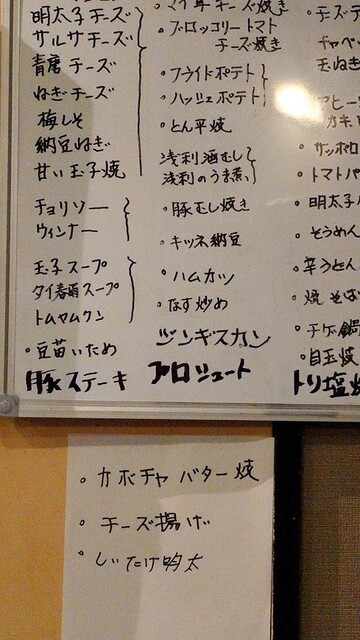 明太子チーズ
サルサチーズ
青唐チーズ
ねぎチーズ
梅しそ
納豆ねぎ
甘い玉子焼
チョリソー
ウィンナー
玉子スープ
タイ春雨スープ
トムヤムクン
・豆苗いため
豚ステーキ
チーズ焼き
・ブロッコリートマト
チーズ焼き
・フライドポテト
・ハッシュポテト
・とん平焼
浅利酒むし
浅利のうま煮
・豚むし焼き
・キツネ納豆
・ハムカツ
・なす炒め
ジンギスカン
プロシュート
玉ねぎ
・サッポロ
・トマトパ
・明太子
・そうめん
・辛うどん
・焼そば
・チゲ鍋
・目玉焼
トリ塩焼
・カボチャバター焼
・チーズ揚げ
・しいたけ明太